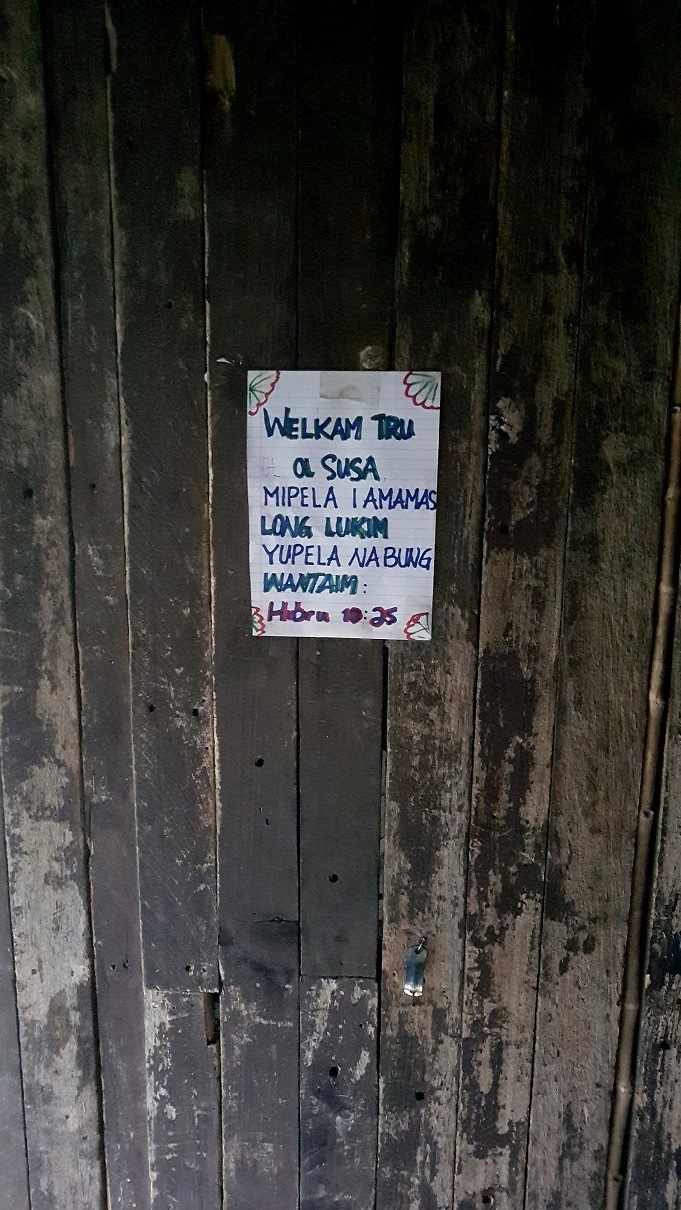 WELKAM TRU
OL SUSA
MIPELA I AMAMAS
LONG LUKIM
YUPELA NA BUNG
WANTAIM:
Hibru 10:25